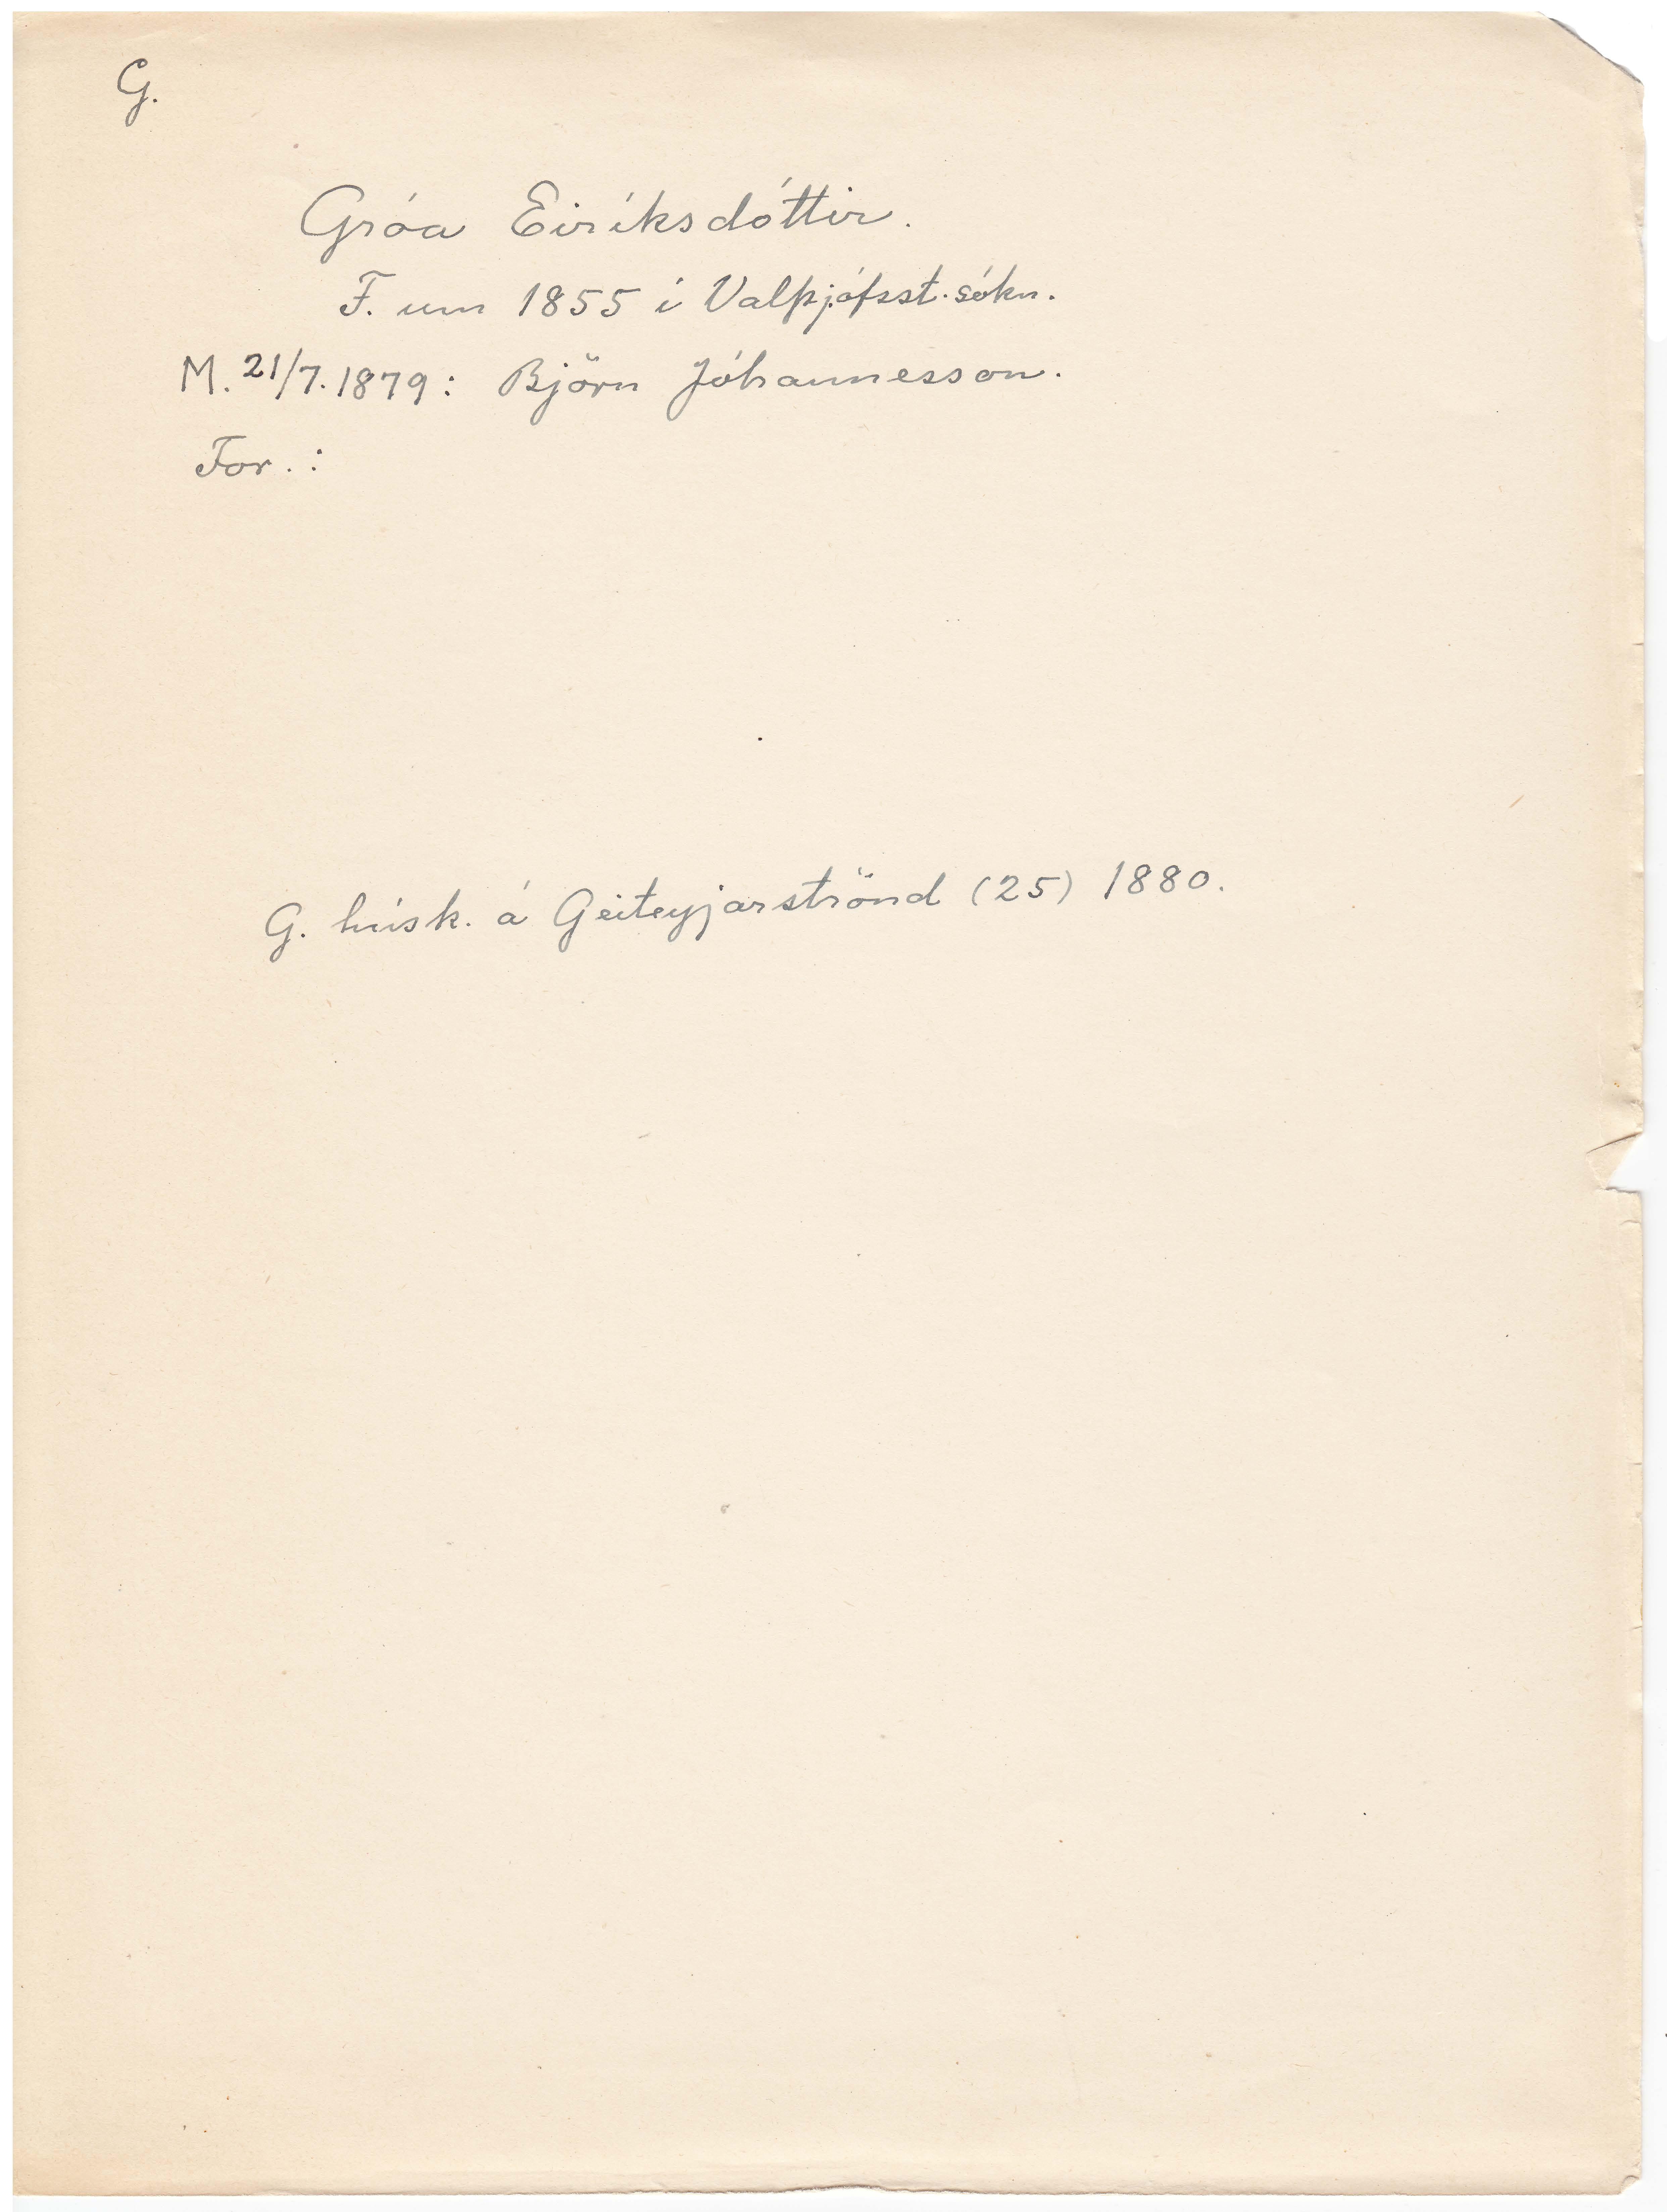 G.
Gróa Eiríksdóttir.
F. um 1855 í Valþjófsst.sókn.
M. 21/7. 1879: Björn Jóhannesson.
For. :
G. húsk. á Geiteyjarströnd (25) 1880.